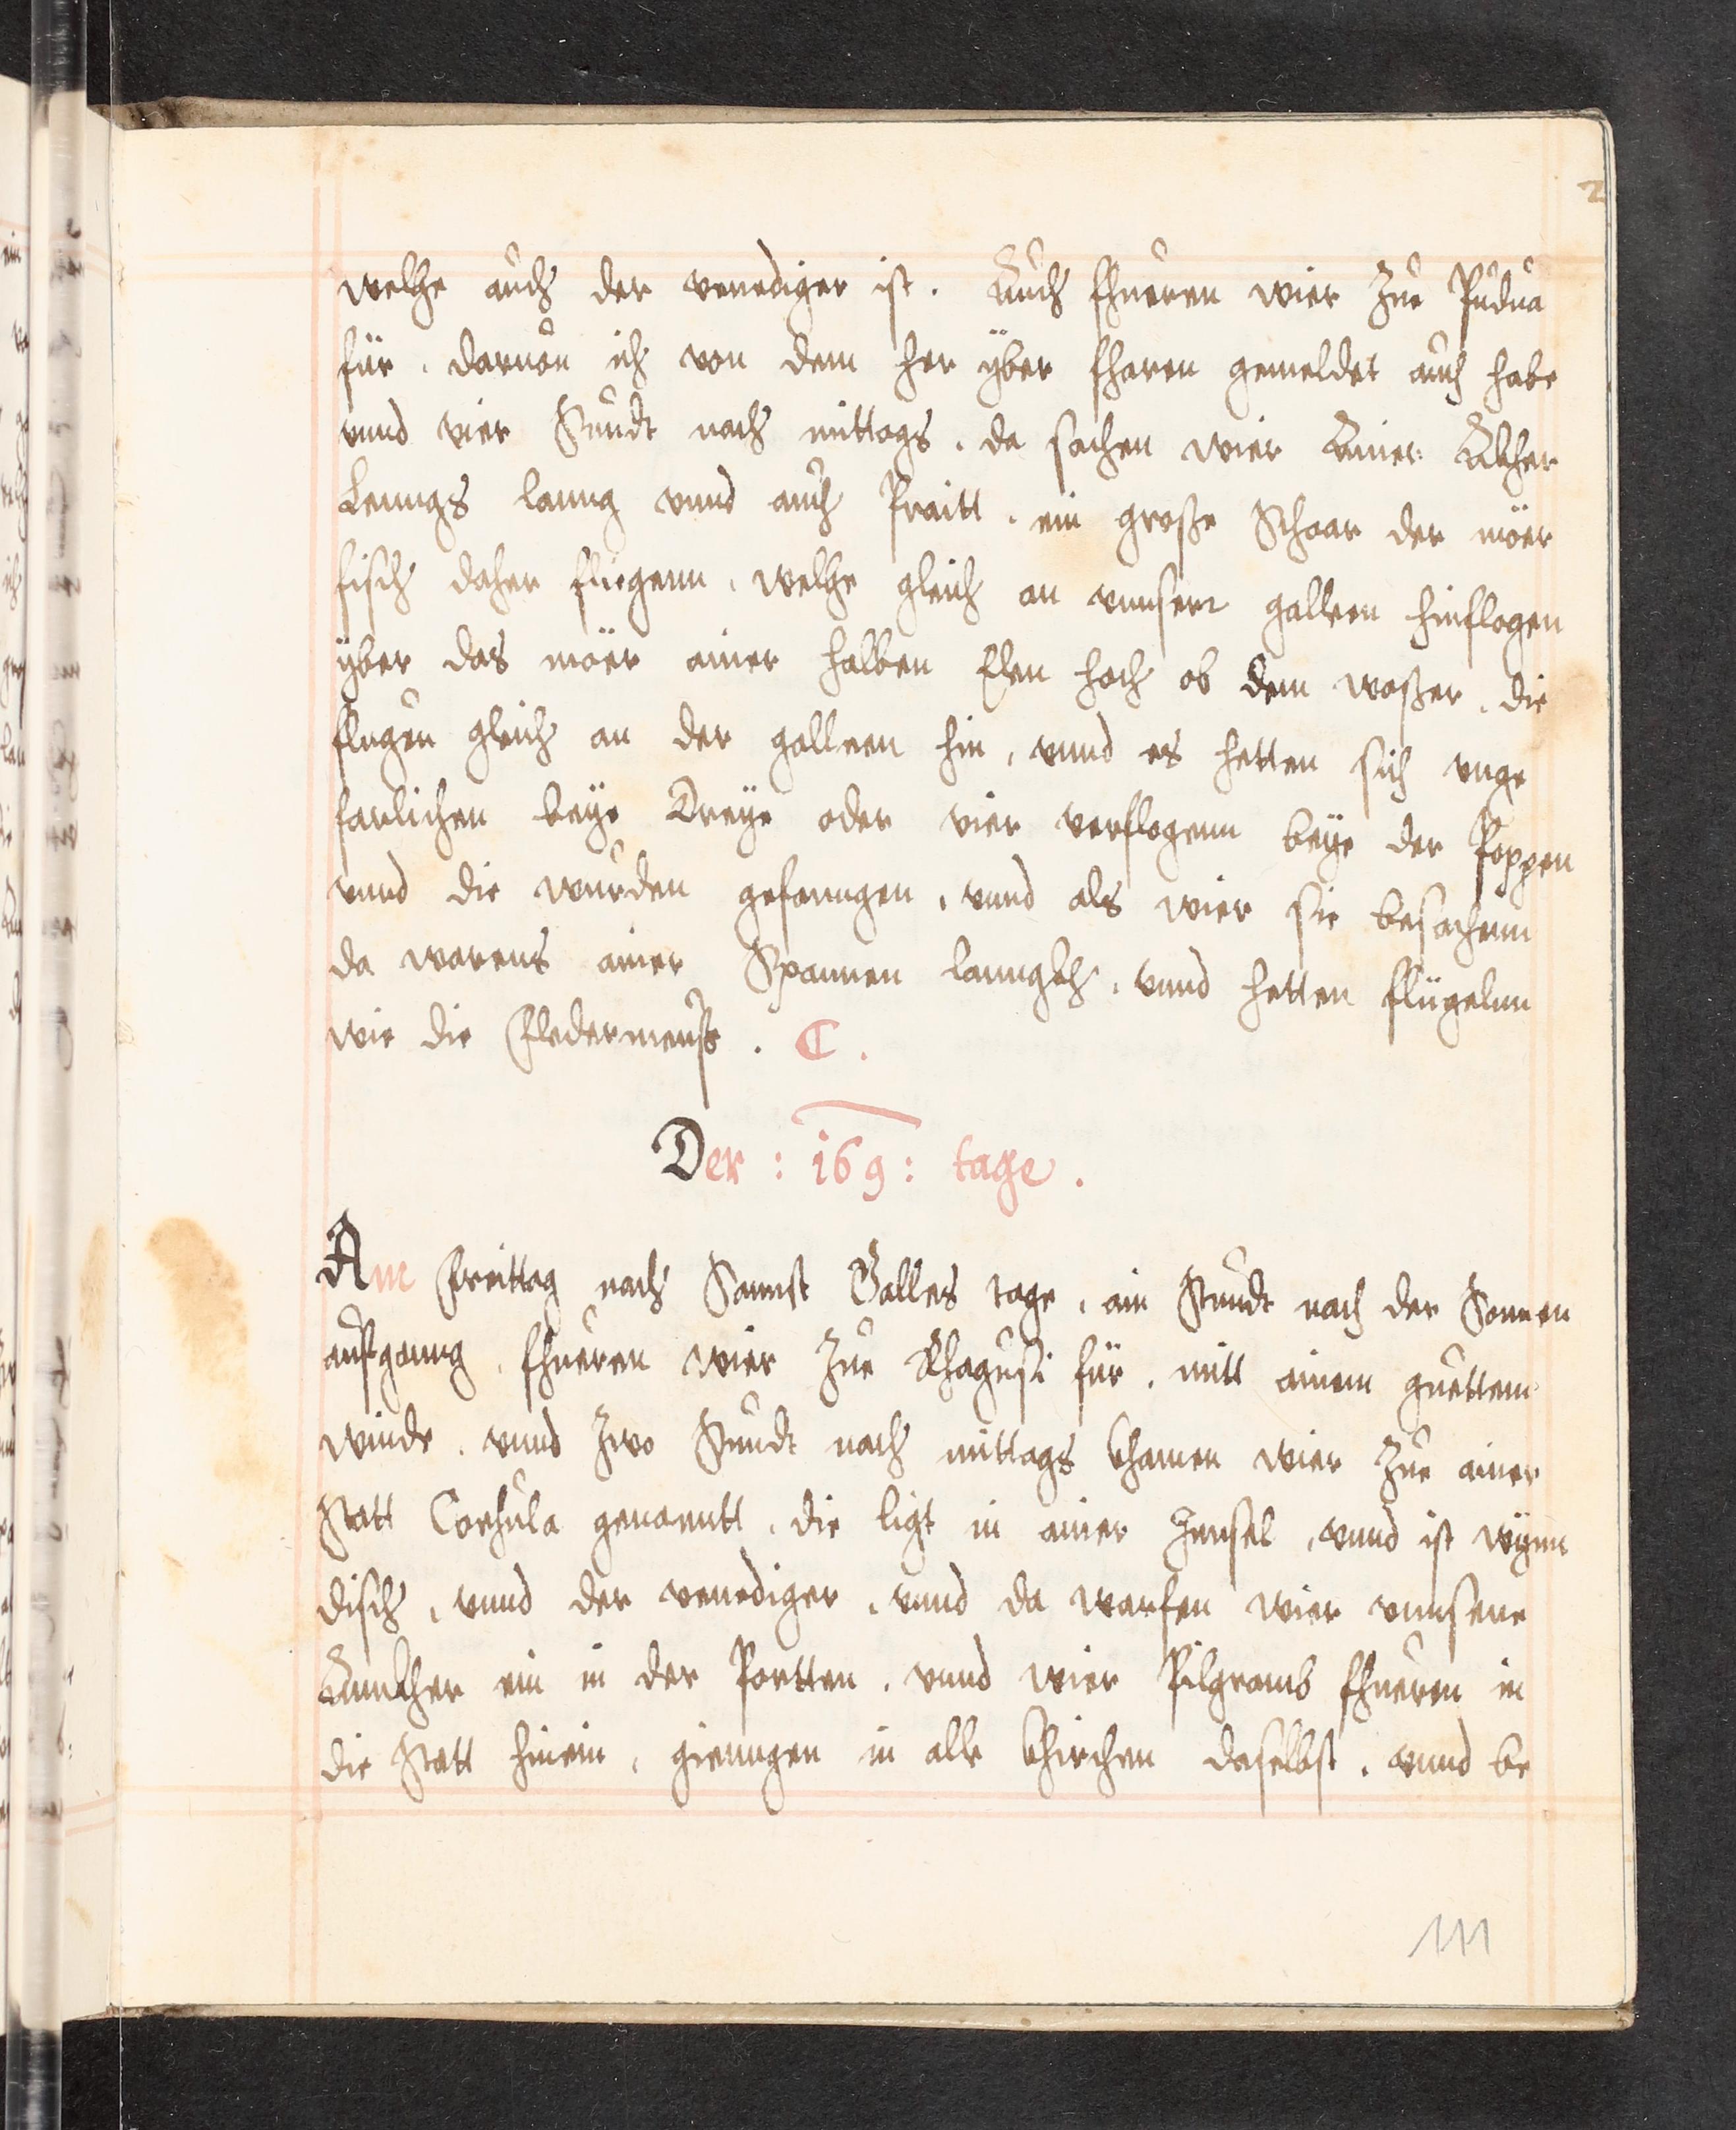 2
welhe auch der venediger ist. Auch fhueren wier Zue Pudua
für. daruon ich von dem her ÿber fharen gemeldet auch habe
vnnd vier Stundt nach mittags. da sachen wier Ainer Akher
Lenngs lanng vnnd auch Praitt. ein große Schaar der möer
fisch daher fliegenn. welhe gleich an vnnserr galleen hinflogen
ÿber das möer ainer halben Elen hoch ob dem waßer. die
flugen gleich an der galleen hin, vnnd es hetten sich unge
farlichen beÿe Dreÿe oder vier verflogenn beÿe der Poppen
vnnd die wurden gefanngen, vnnd als wier sie besachenn
da warens ainer Spannen lanngkh. vnnd hetten flügelnn
wie die Fledermeuß. C.
Der : 169 : tage.
Am Freittag nach Sannst Galles tage. ain Stundt nach der Sonnen
aufganng. fhueren wier Zue Rhagusi für. mitt ainem guettem
winde. vnnd Zwo Stundt nach mittags khamen wier Zue ainer
Statt Corsula genanntt. die ligt in ainer Innsel, vnnd ist wÿnn
disch, vnnd der venediger. vnnd da warfen wier vnnsere
Annkher ein in der Portten. vnnd wier Pilgramb fhueren in
die Statt hinein, giengen in alle khirchen daselbst. vnnd be
111